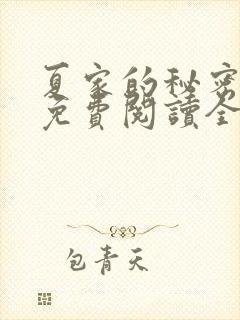 夏家的秘密
免費閱讀全
包青天